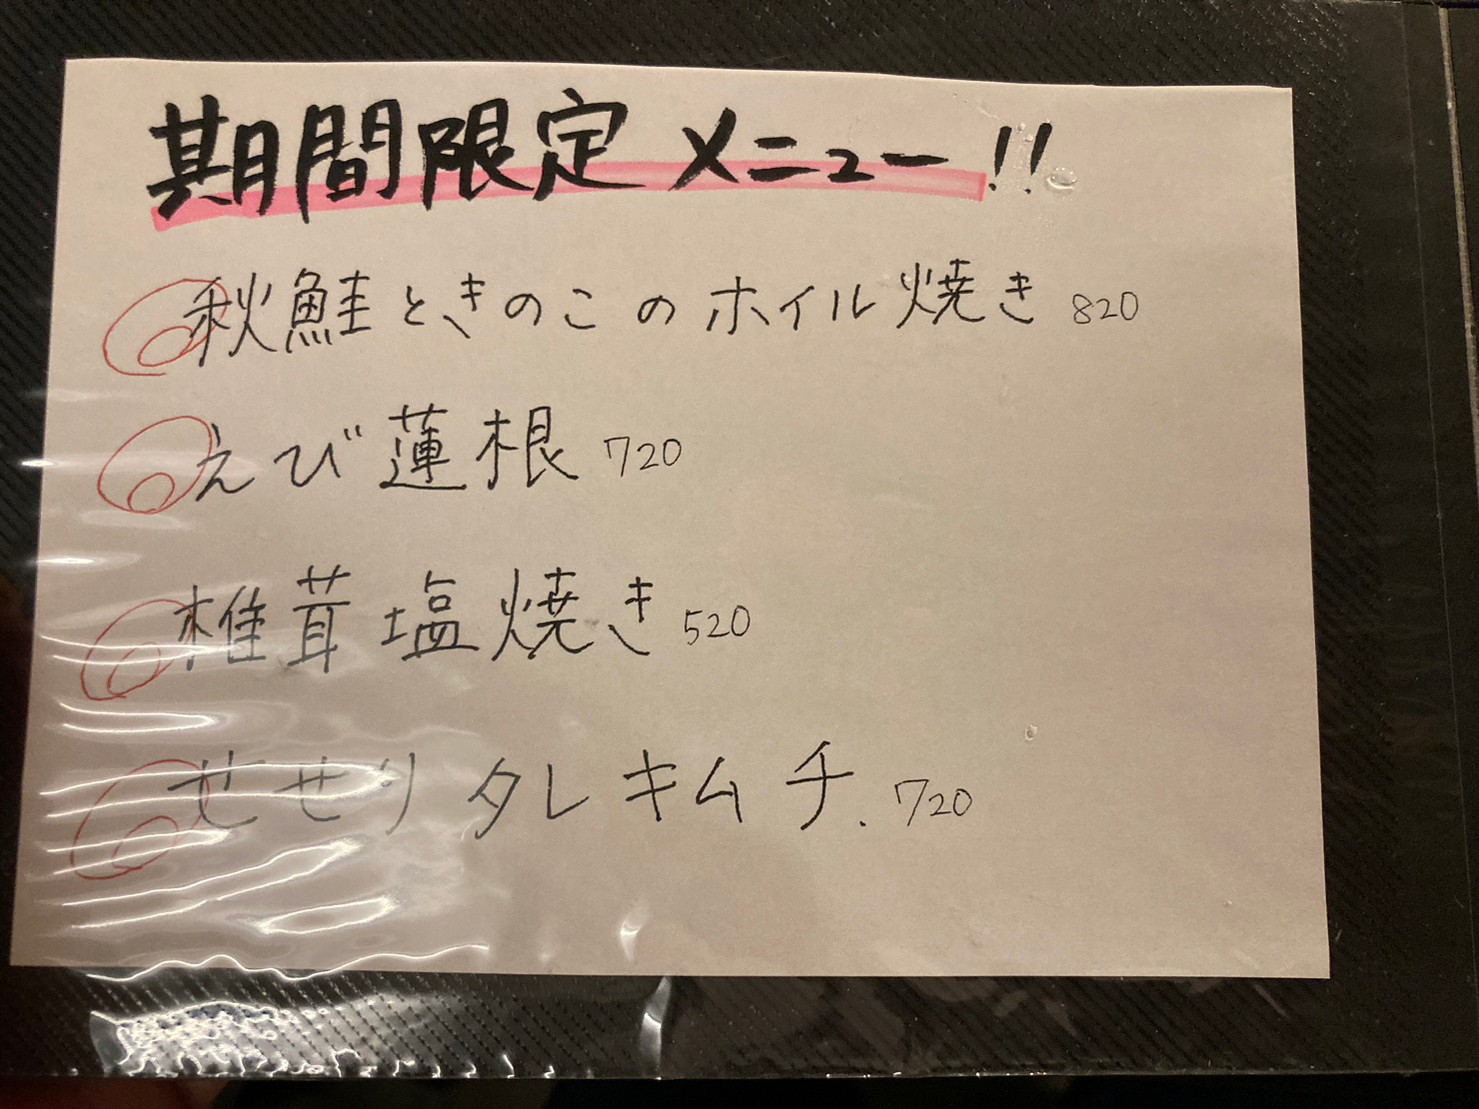 期間限定メニュー!!
秋鮭ときのこのホイル焼き 820
えび蓮根 720
椎茸塩焼き 520
せせりタレキムチ. 720